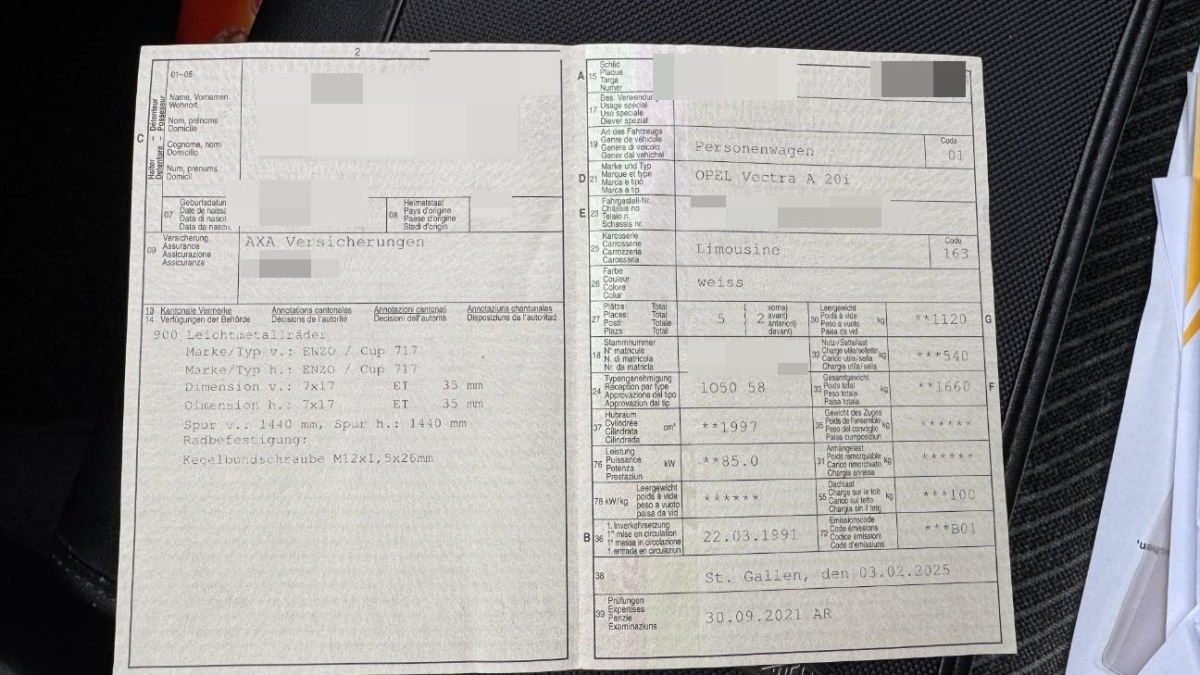 2
01-06
C
Halter Détenteur
Detentore Possessur
Name, Vornamen
Wohnort
Nom, prénoms
Domicile
Cognome, nomi
Domicilio
Num, prenums
Domicil
07
Geburtsdatum
Date de
Data di
Data da
08
Heimatstaat
Pays d'origine
Paese d'origine
Stadi d'origin
09
Versicherung
Assurance
Assicurazione
Assicuranza
AXA Versicherungen
13 Kantonale Vermerke Annotations cantonales Annotazioni cantonali Annotaziuns chantunalas
14 Verfügungen der Behörde Décisions de l'autorité Decisioni dell'autorità Disposiziuns da l'autoritad
900 Leichtmetallräder
Marke/Typ v.: ENZO / Cup 717
Marke/Typ h.: ENZO / Cup 717
Dimension v.: 7x17 ET 35 mm
Dimension h.: 7x17 ET 35 mm
Spur v.: 1440 mm, Spur h.: 1440 mm
Radbefestigung:
Kegelbundschraube M12x1,5x26mm
A 15
Schild
Plaque
Targa
Numer
17
Bes. Verwendung
Usage spécial
Uso speciale
Diever spezial
19
Art des Fahrzeugs
Genre de véhicule
Genere di veicolo
Gener dal vehichel
Personenwagen
Code
01
D 21
Marke und Typ
Marque et type
Marca e tipo
Marca e tip
OPEL Vectra A 20i
E 23
Fahrgestell-Nr.
Châssis no
Telaio n.
Schassis nr.
25
Karosserie
Carrosserie
Carrozzeria
Carossaria
Limousine
Code
163
26
Farbe
Couleur
Colore
Colur
weiss
27
Plätze: Total
Places: Total
Posti: Totale
Plazs: Total
5 ( 2
vorne)
avant)
anteriori)
davant)
30
Leergewicht
Poids à vide
Peso a vuoto
Paisa da vid
kg
**1120
G
18
Stammnummer
N° matricule
N. di matricola
Nr. da matricla
32
Nutz-/Sattellast
Charge utile/sellette
Carico utile/sella
Chargia utila/sella
kg
***540
24
Typengenehmigung
Réception par type
Approvazione del tipo
Approvaziun dal tip
1O50 58
33
Gesamtgewicht
Poids total
Peso totale
Paisa totala
kg
**1660
F
37
Hubraum
Cylindrée
Cilindrata
Cilindrada
cm³
**1997
35
Gewicht des Zuges
Poids de l'ensemble
Peso del convoglio
Paisa cumposiziun
kg
******
76
Leistung
Puissance
Potenza
Prestaziun
kW
**85.0
31
Anhängelast
Poids remorquable
Carico rimorchiato
Chargia annexa
kg
******
78 kW/kg
Leergewicht
poids à vide
peso a vuoto
paisa da vid
******
55
Dachlast
Charge sur le toit
Carico sul tetto
Chargia sin il tetg
kg
***100
B 36
1. Inverkehrsetzung
1re mise en circulation
1a messa in circolazione
1. entrada en circulaziun
22.03.1991
72
Emissionscode
Code émissions
Codice emissioni
Code d'emissiuns
***B01
38
St. Gallen, den 03.02.2025
39
Prüfungen
Expertises
Perizie
Examinaziuns
30.09.2021 AR